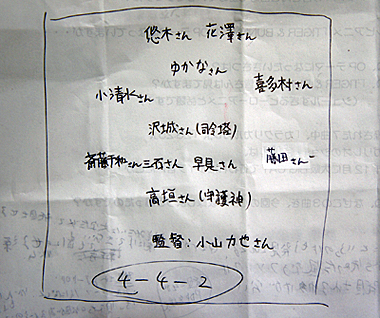 悠木さん 花澤さん
ゆかなさん
小清水さん 喜多村さん
沢城さん(司令塔)
斎藤千和さん 三石さん 早見さん 藤田さん
高垣さん(守護神)
監督:小山力也さん
4-4-2